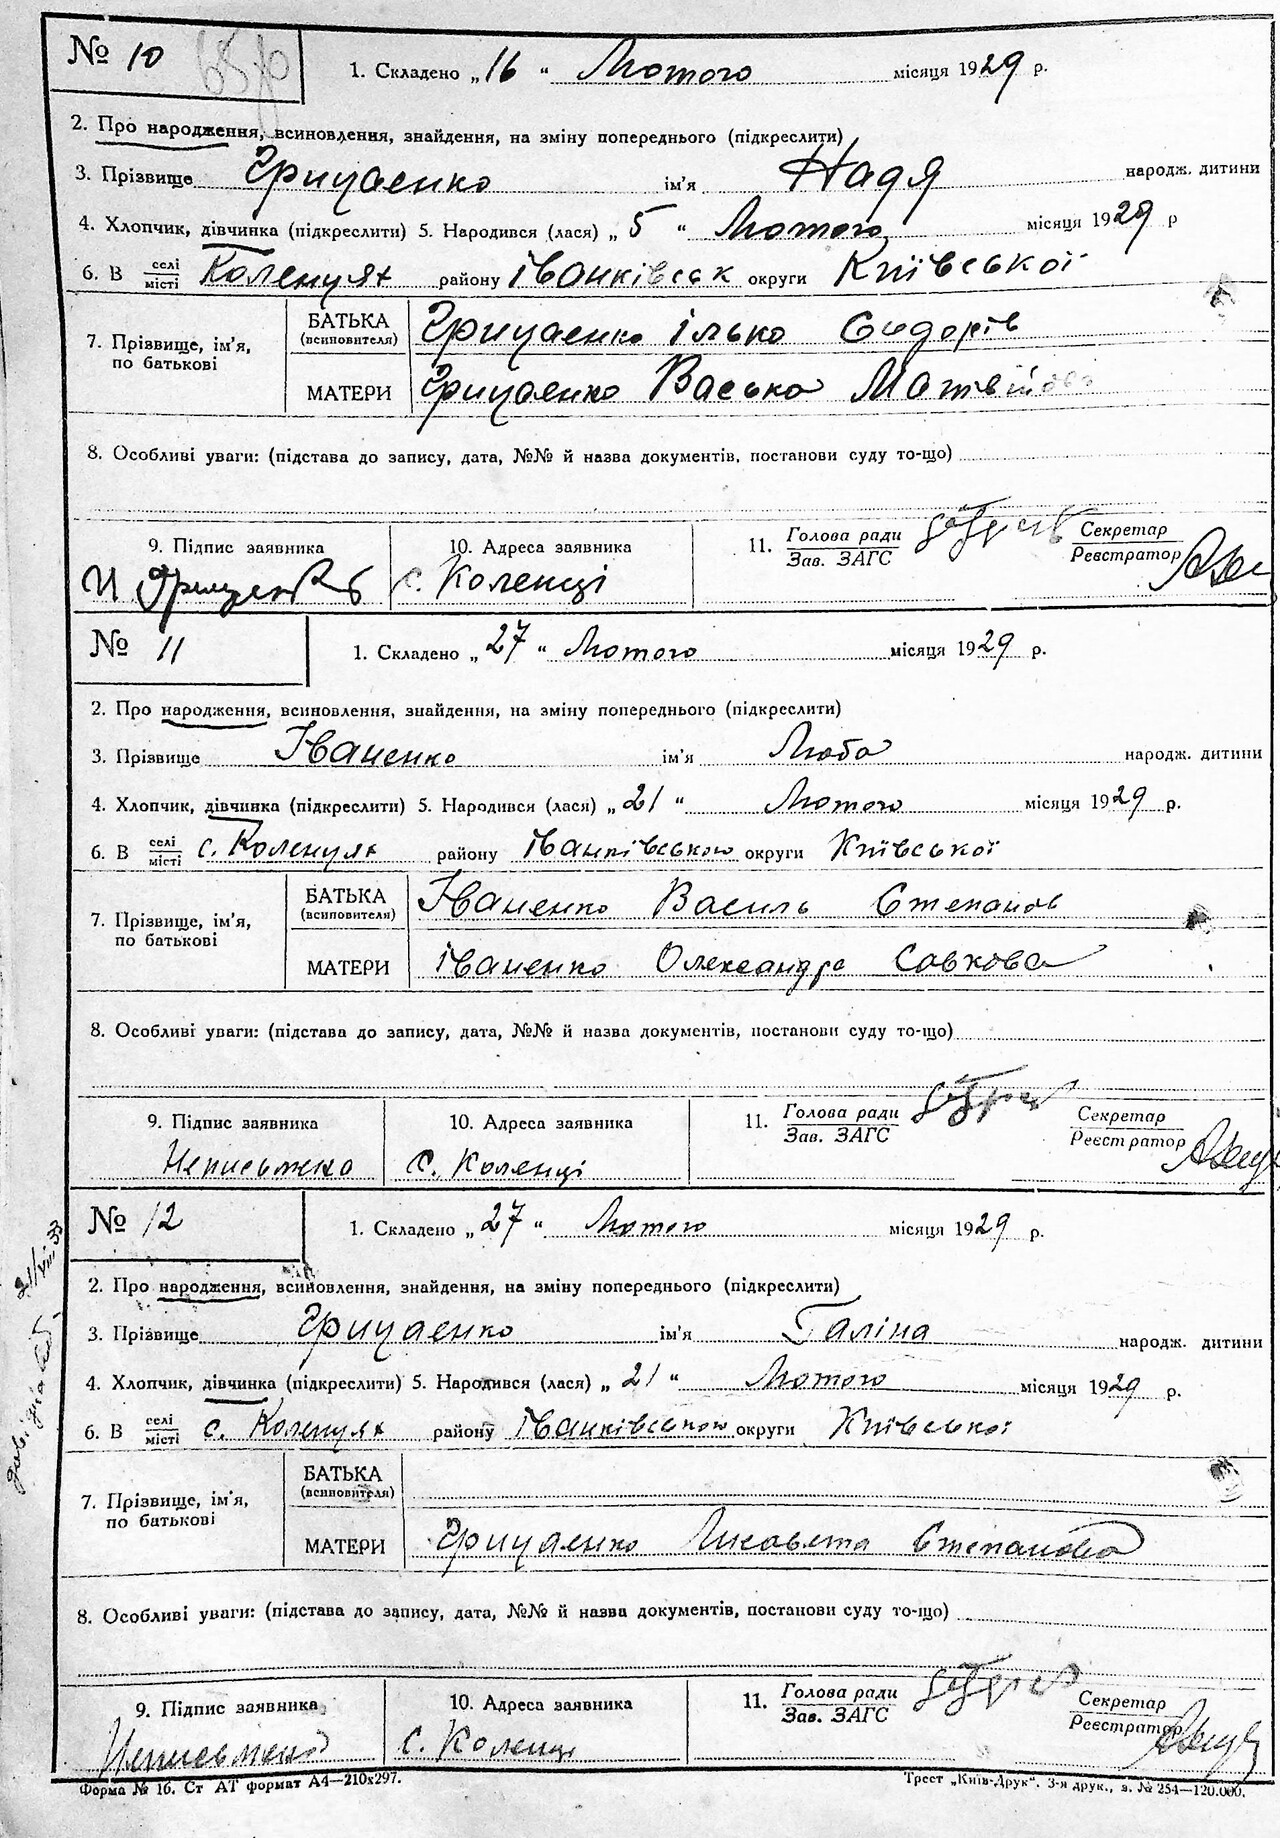 № 10
1. Складено „16“ Лютого місяця 1929 р.
2. Про народження, всиновлення, знайдення, на зміну попереднього (підкреслити)
3. Прізвище Грицаенко ім'я Надя народж. дитини
4. Хлопчик, дівчинка (підкреслити) 5. Народився (лася) „5“ Лютого місяця 1929 р
6. В селі місті Коленцях району Іванківськ округи Київської
7. Прізвище, ім'я, по батькові
БАТЬКА (всиновителя) Грицаенко Ілько Сидорів
МАТЕРИ Грицаенко Васька Матвійова
8. Особливі уваги: (підстава до запису, дата, №№ й назва документів, постанови суду то-що)
9. Підпис заявника 10. Адреса заявника 11. Голова ради Зав. ЗАГС Секретар Реєстратор
И с. Коленці
№ 11
1. Складено „27“ Лютого місяця 1929 р.
2. Про народження, всиновлення, знайдення, на зміну попереднього (підкреслити)
3. Прізвище Іваненко ім'я Люба народж. дитини
4. Хлопчик, дівчинка (підкреслити) 5. Народився (лася) „21“ Лютого місяця 1929 р.
6. В селі місті с. Коленцях району Іванківського округи Київської
7. Прізвище, ім'я, по батькові
БАТЬКА (всиновителя) Іваненко Василь Степанов
МАТЕРИ Іваненко Олександра Савкова
8. Особливі уваги: (підстава до запису, дата, №№ й назва документів, постанови суду то-що)
9. Підпис заявника 10. Адреса заявника 11. Голова ради Зав. ЗАГС Секретар Реєстратор
Неписьмена с. Коленці
№ 12
1. Складено „27“ Лютого місяця 1929 р.
2. Про народження, всиновлення, знайдення, на зміну попереднього (підкреслити)
3. Прізвище Грицаенко ім'я Галіна народж. дитини
4. Хлопчик, дівчинка (підкреслити) 5. Народився (лася) „21“ Лютого місяця 1929 р.
6. В селі місті с. Коленцях району Іванківського округи Київської
7. Прізвище, ім'я, по батькові
БАТЬКА (всиновителя)
МАТЕРИ Грицаенко Лисавета Степанова
8. Особливі уваги: (підстава до запису, дата, №№ й назва документів, постанови суду то-що)
9. Підпис заявника 10. Адреса заявника 11. Голова ради Зав. ЗАГС Секретар Реєстратор
Неписьмена с. Коленці
21/VIII 33
Форма № 16. Ст АТ формат А4—210х297.
Трест „Київ-Друк“. 3-я друк., з. № 254—120.000.